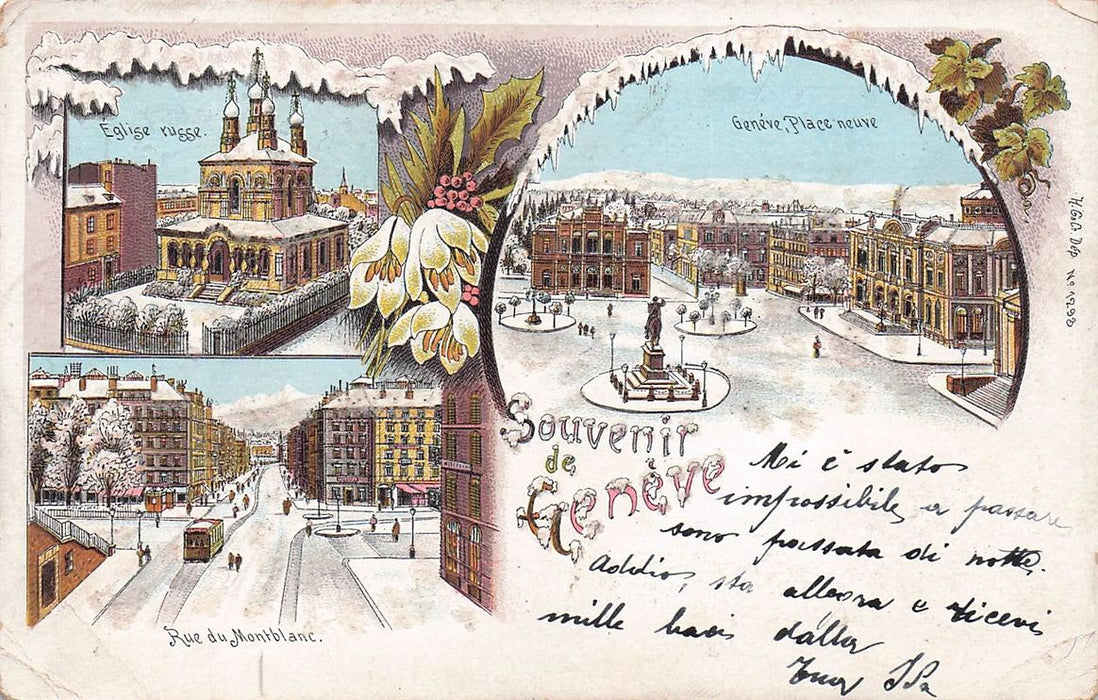 Église russe.
Genéve, Place neuve
H. G. & C. Dép. No. 15293
Rue du Montblanc.
Souvenir
de
Genève
Mi è stato
impossibile a passare
sono passata di notte.
Addio, sta allegra e ricevi
mille baci dalla
tua